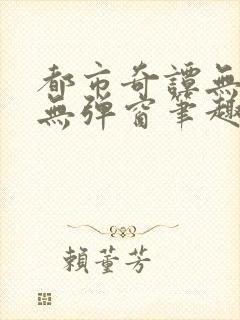 都市奇譚無
無彈窗筆趣
賴董芳